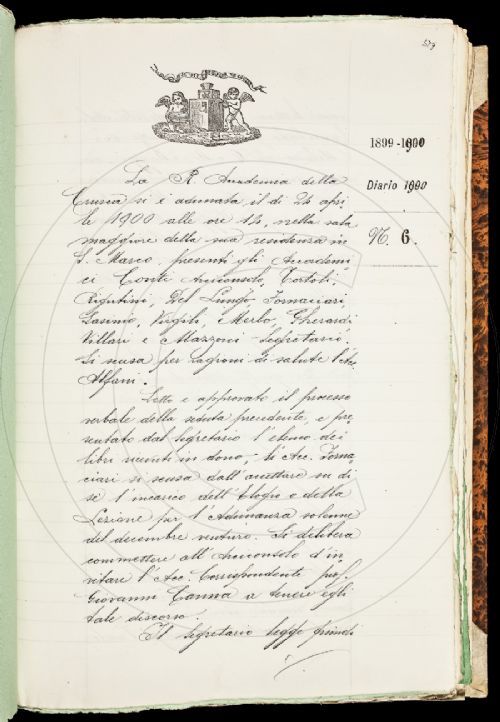 579
1899-1900
Diario 1900
N. 6.
La R. Accademia della
Crusca si è adunata il dì 24 apri
le 1900 alle ore 12, nella sala
maggiore della sua residenza in
S. Marco, presenti gli Accademi
ci Conti Arciconsolo, Tortoli,
Rigutini, Del Lungo, Fornaciari,
Gasinio, Virgili, Merlo, Gherardi
Villari e Mazzoni Segretario.
Si scusa per cagioni di salute l'Acc.
Alfani.
Letto e approvato il processo
verbale della seduta precedente, e pre
sentato dal Segretario l'elenco dei
libri venuti in dono, l'Acc. Forna
ciari si scusa dall'accettare su di
sè l'incarico dell'Elogio e della
Lezione per l'Adunanza solenne
del decembre venturo. Si delibera
commettere all'Arciconsolo d'in
vitare l'Acc. Corrispondente prof.
Giovanni Canna a tenere egli
tale discorso.
Il Segretario legge quindi